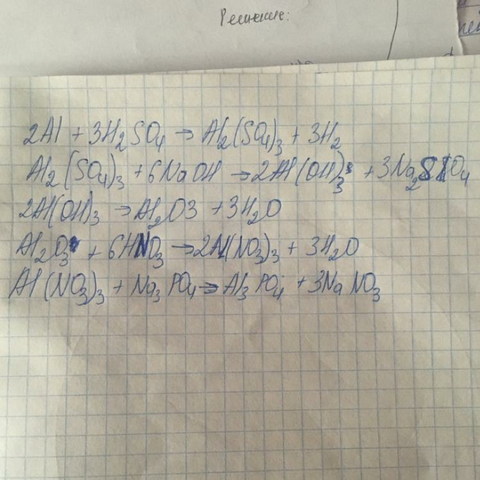 Решение:
2Al + 3H₂SO₄ → Al₂(SO₄)₃ + 3H₂
Al₂(SO₄)₃ + 6NaOH → 2Al(OH)₃ + 3Na₂SO₄
2Al(OH)₃ → Al₂O3 + 3H₂O
Al₂O₃ + 6HNO₃ → 2Al(NO₃)₃ + 3H₂O
Al(NO₃)₃ + Na₃PO₄ → Al₃PO₄ + 3NaNO₃